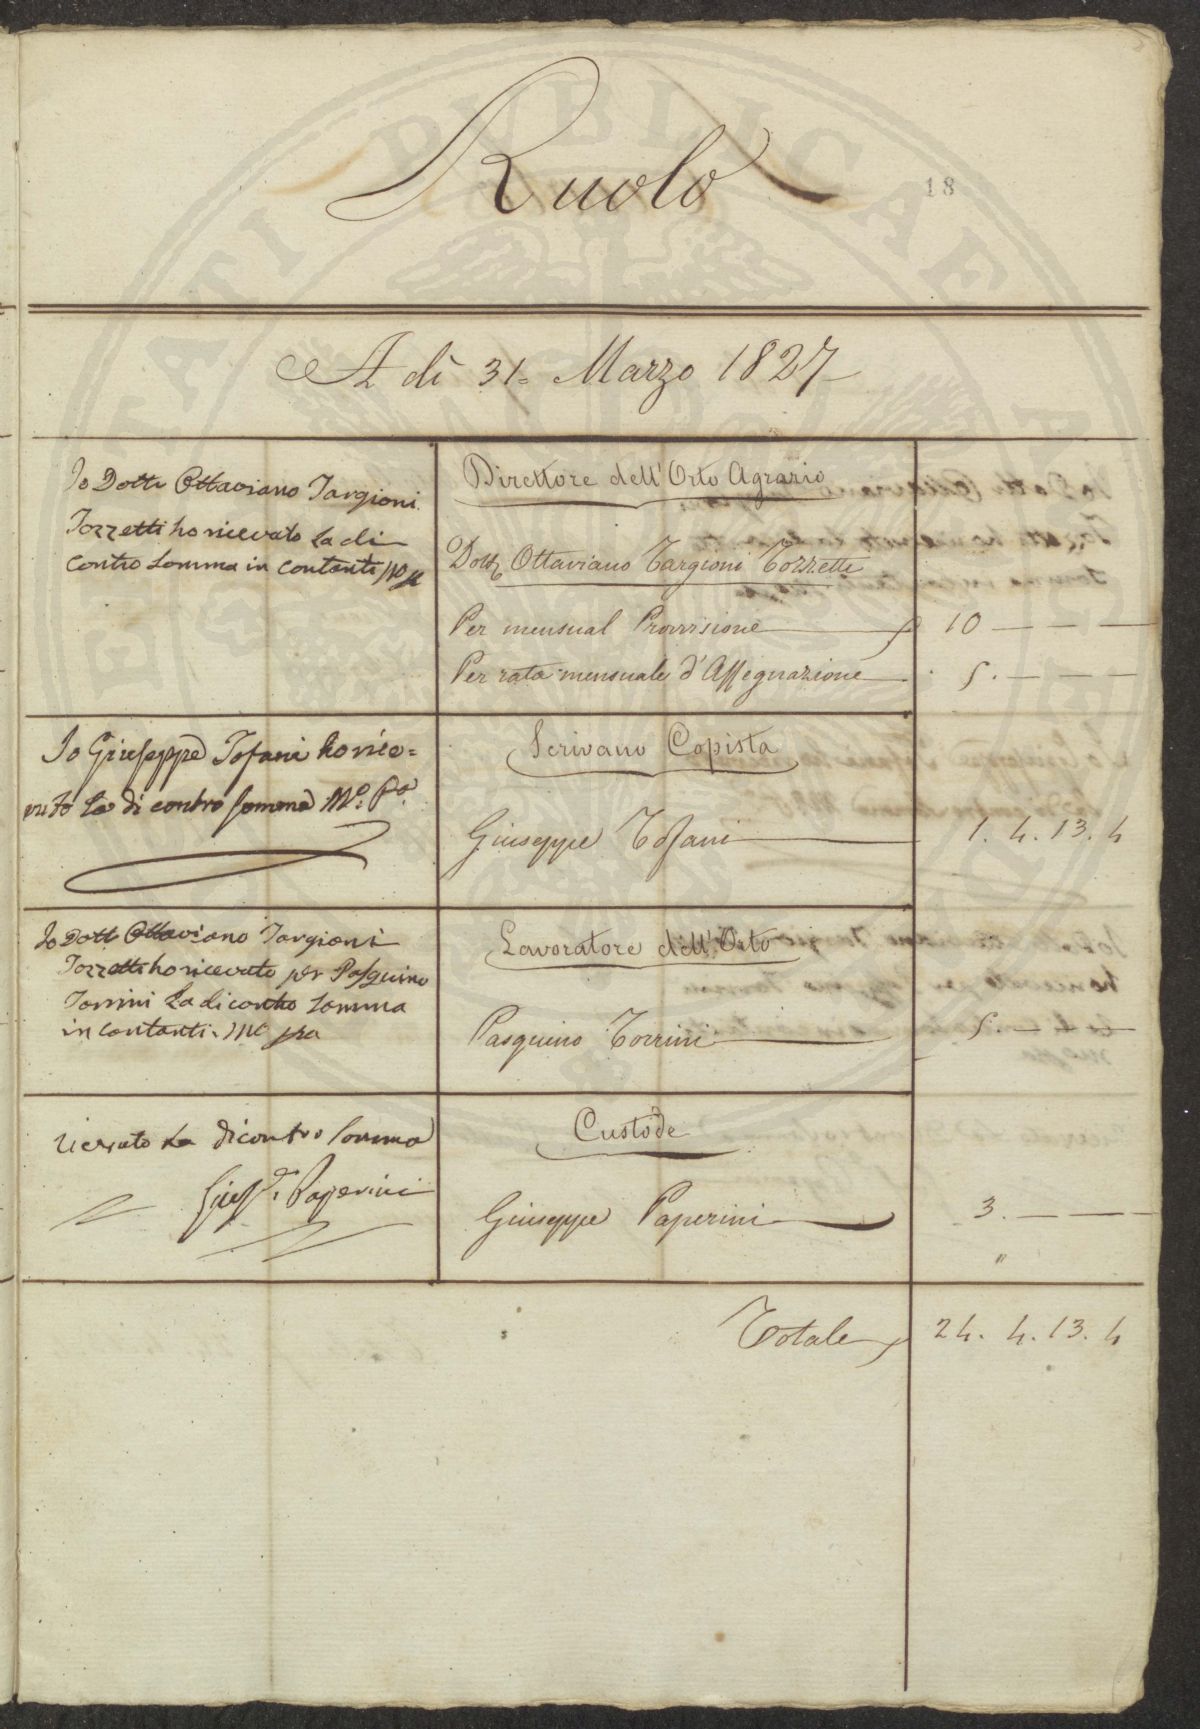 Ruolo
18
A dì 31. Marzo 1827
Io Dotte Ottaviano Targioni
Tozzetti ho ricevuto la di
contro somma in contanti Mo pa
Direttore dell'Orto Agrario
Dott. Ottaviano Targioni Tozzetti
Per mensual Provvisione 10 — — —
Per rata mensuale d'Assegnazione 5. — — —
Io Giuseppe Tofani ho rice=
vuto la di contro somma Mo. Po.
Scrivano Copista
Giuseppe Tofani 1. 4. 13. 4
Io Dott Ottaviano Targioni
Tozzetti ho ricevuto per Pasquino
Torrini la di contro somma
in contanti. Mo pra
Lavoratore dell'Orto
Pasquino Torrini 5. — — —
Ricevuto la di contro somma
Giuspe. Paperini
Custode
Giuseppe Paperini 3. — — —
"
Totale 24. 4. 13. 4